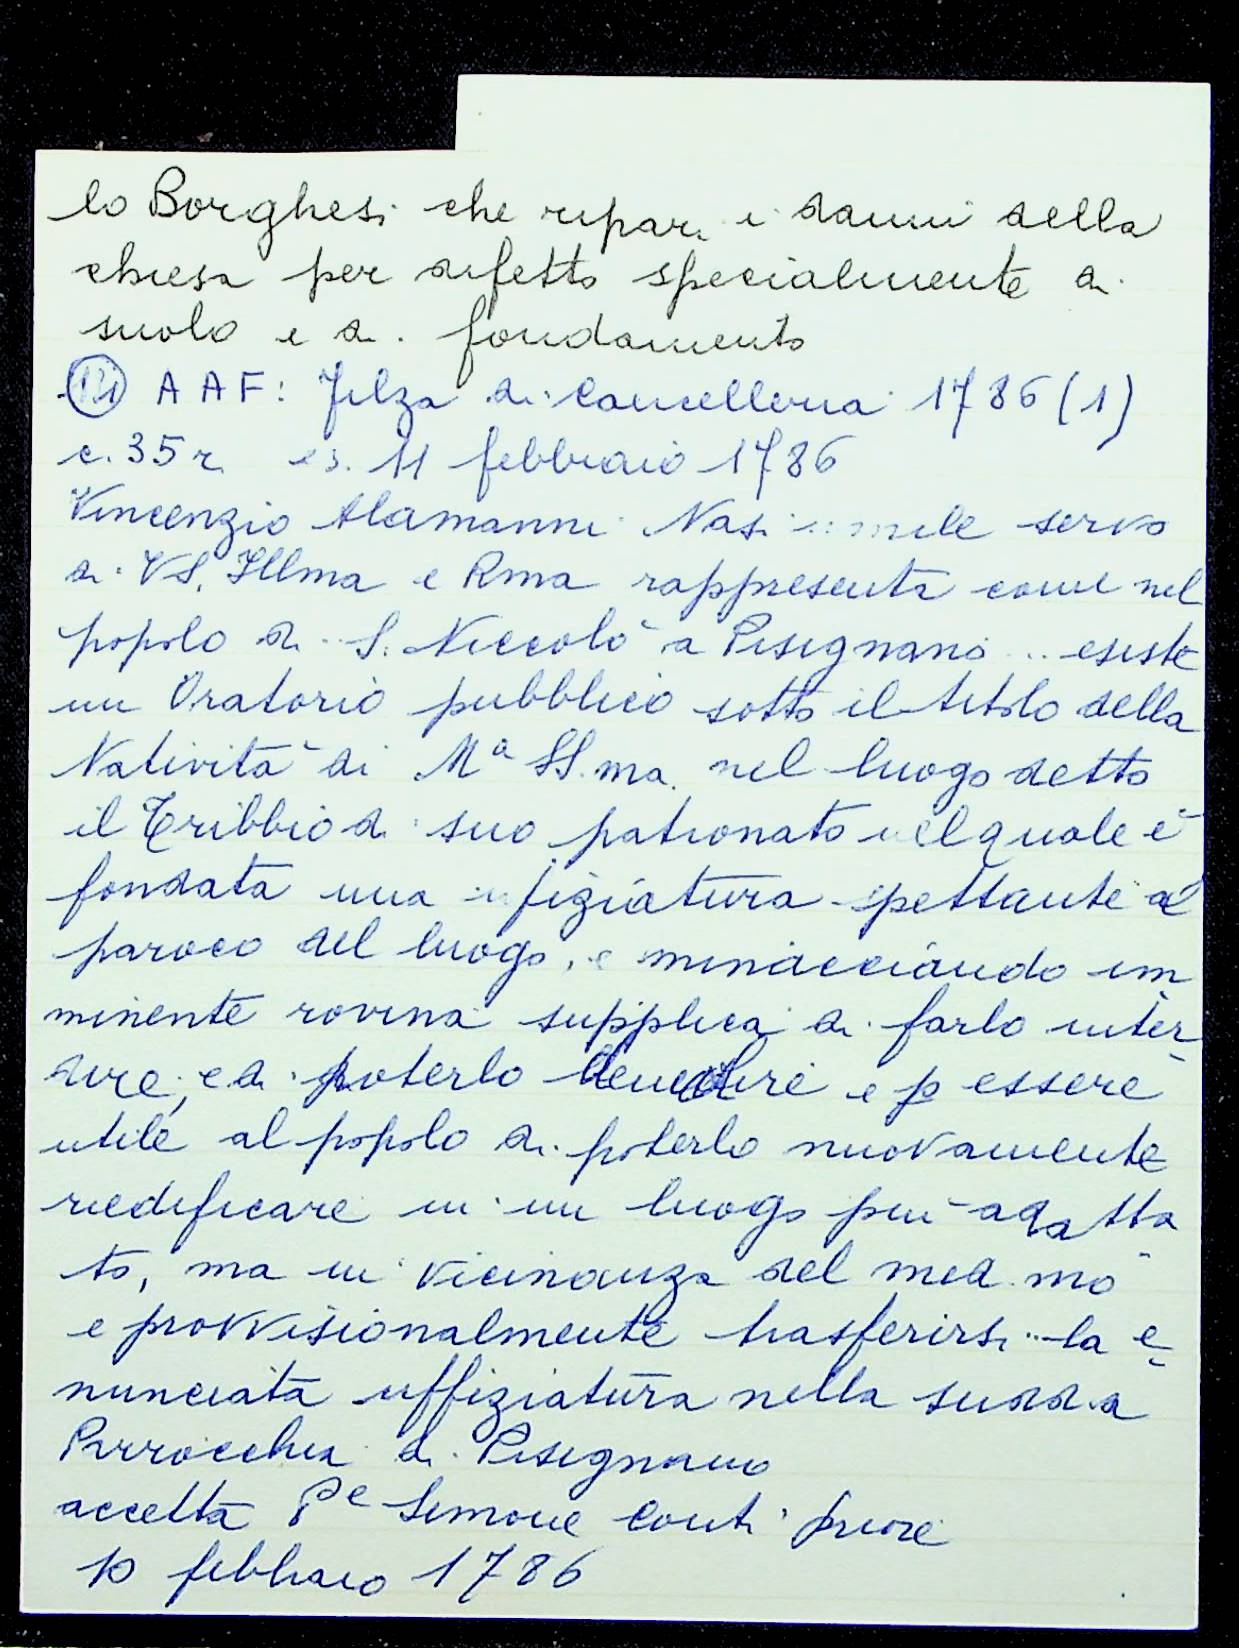 lo Borghesi che ripari i danni della
chiesa per difetto specialmente di
suolo e di fondamento
AAF: Filza di Cancelleria 1786 (1)
c. 35 r es. 11 febbraio 1786
Vincenzio Alamanni Nasi umile servo
di VS. Illma e Rma rappresenta come nel
popolo di S. Niccolò a Pisignano .. esiste
un Oratorio pubblico sotto il titolo della
Natività di Mª SS.ma nel luogo detto
il Tribbio di suo patronato nel quale è
fondata una ufiziatura spettante al
paroco del luogo, e minacciando im
minente rovina supplica di farlo inter
dire, e di poterlo e p essere
utile al popolo di poterlo nuovamente
riedificare in un luogo più adatta
to, ma in vicinanza del med.mo
e provvisionalmente trasferirsi la e
nunciata uffiziatura nella sudd.a
Parrocchia di Pisignano
accetta Pe Simone Conti priore
10 febbraio 1786